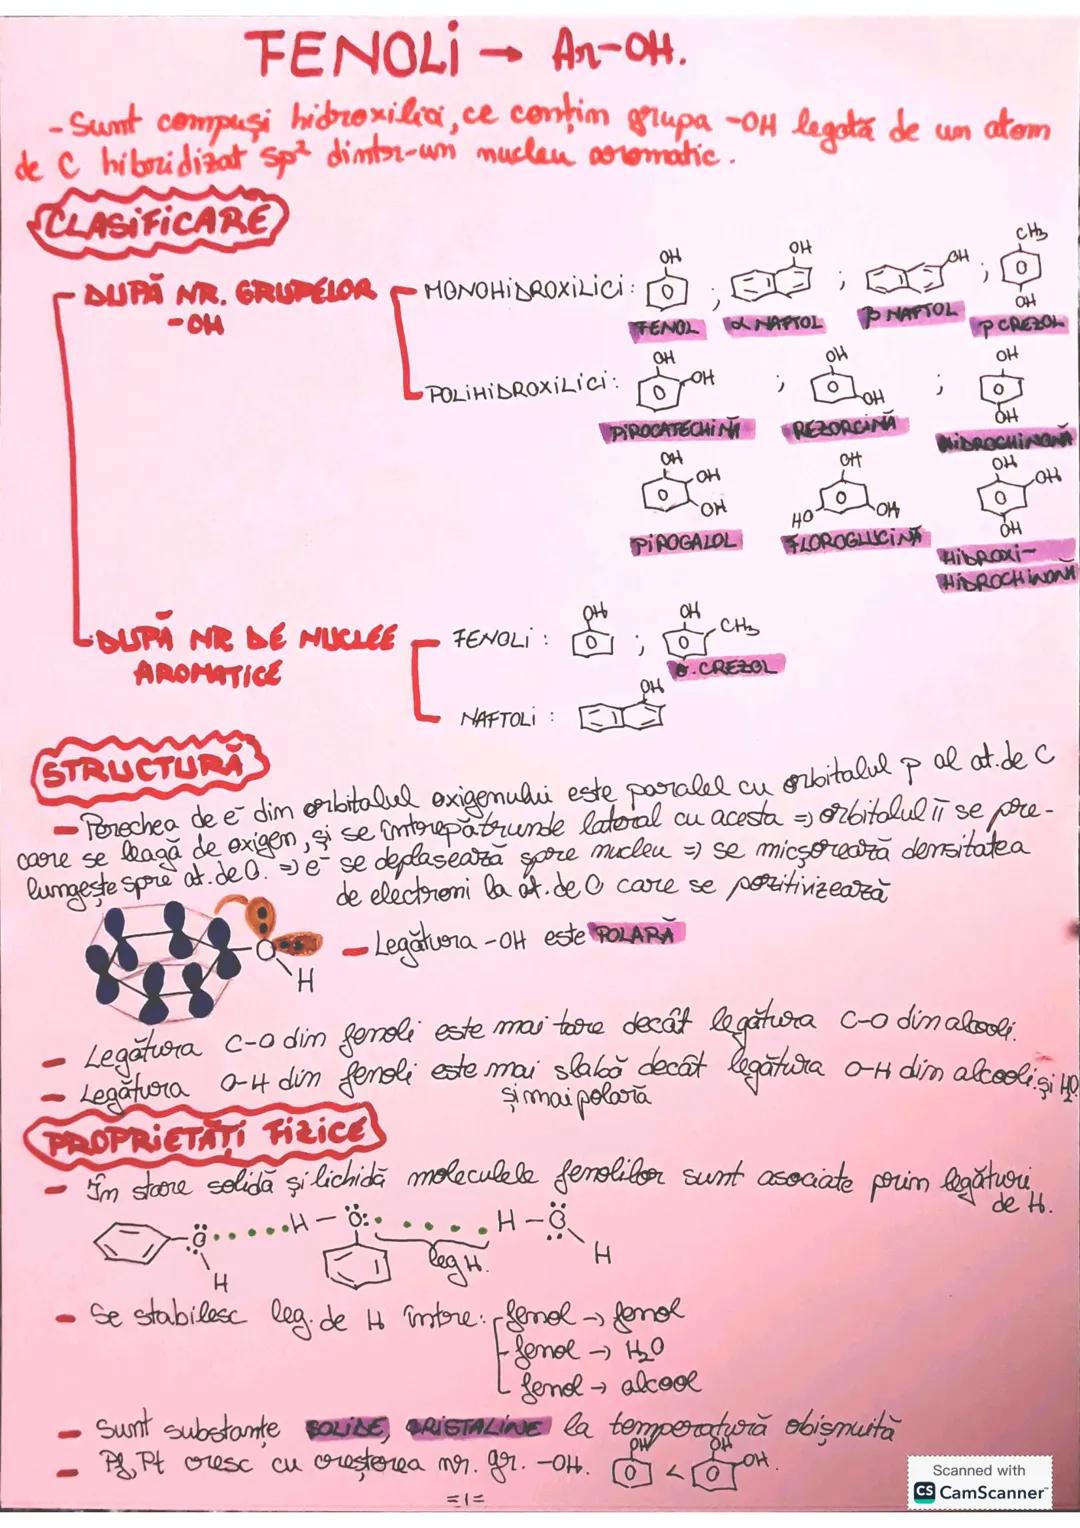 FENOLI → Ar-OH.
- Sunt compuși hidroxilici, ce conțin grupa -OH legată de un atom
de C hibridizat sp² dintr-un nucleu aromatic.
CLASIFICARE
DUPĂ NR. GRUPELOR
-OH
MONOHIDROXILICI:
OH
;
OH
;
OH
;
CH₃
OH
FENOL
α NAFTOL
β NAFTOL
p CREZOL
POLIHIDROXILICI:
OH
OH
;
OH
OH
;
OH
OH
PIROCATECHINĂ
REZORCINĂ
HIDROCHINONĂ
OH
OH
OH
OH
HO
OH
OH
OH
OH
PIROGALOL
FLOROGLUCINĂ
HIDROXI-
HIDROCHINONĂ
DUPĂ NR DE NUCLEE
AROMATICE
FENOLI :
OH
;
OH
CH₃
o. CREZOL
NAFTOLI :
OH
STRUCTURĂ
- Perechea de e⁻ din orbitalul oxigenului este paralel cu orbitalul p al at. de C
care se leagă de oxigen, și se întrepătrunde lateral cu acesta ⇒ orbitalul π se pre-
lungește spre at. de O. ⇒ e⁻ se deplasează spre nucleu ⇒ se micșorează densitatea
de electroni la at. de O care se pozitivizează
O
H
- Legătura -OH este POLARĂ
- Legătura C-O din fenoli este mai tare decât legătura C-O din alcooli.
- Legătura O-H din fenoli este mai slabă decât legătura O-H din alcooli și H₂O
și mai polară
PROPRIETĂȚI FIZICE
- În stare solidă și lichidă moleculele fenolilor sunt asociate prin legături
de H.
O
H
H - O
leg H.
H - O
H
- Se stabilesc leg. de H între: fenol → fenol
- fenol → H₂O
fenol → alcool
- Sunt substanțe SOLIDE, CRISTALINE la temperatură obișnuită
- Pf, Pt cresc cu creșterea nr. gr. -OH.
OH
<
OH
OH.
=1=
Scanned with
CS CamScanner